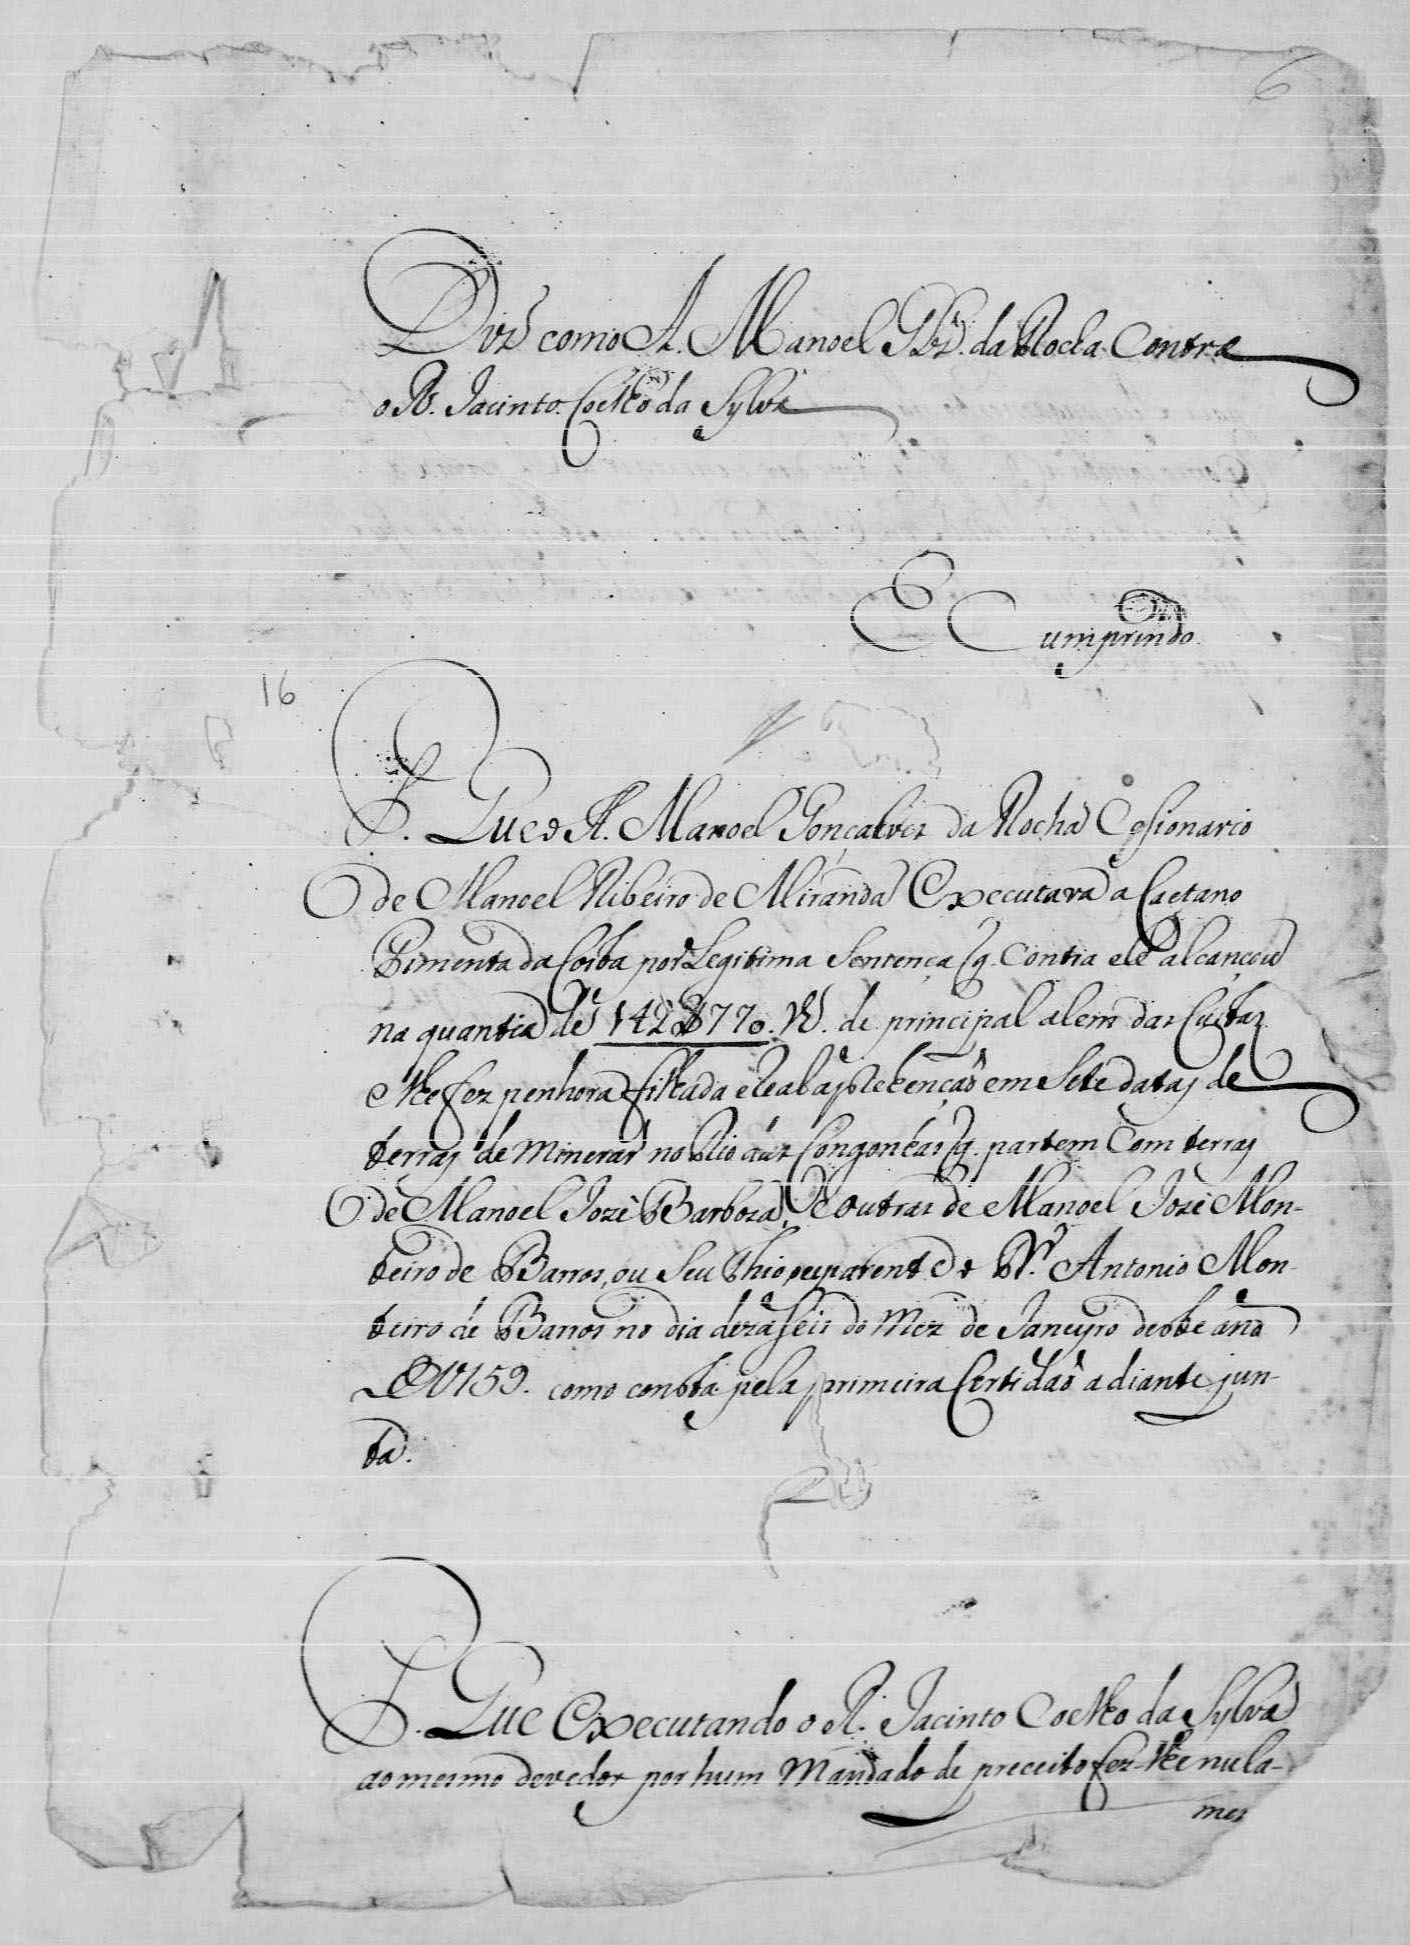 6
Diz como A. Manoel Glz. da Rocha Contra
o R. Jacinto Coelho da Sylva
E Cumprindo
16
P. Que o A. Manoel Gonçalves da Rocha Cesionario
de Manoel Ribeiro de Miranda Executara a Caetano
Pimenta da Costa por Legitima Sentença q. Contra ele alcançou
na quantia de 142$770. R. de principal alem das Custas
e lhe fez penhora filhada e Real aprehençaõ em Sete datas de
terras de minerar no Rio das Congonhas q. partem Com terras
de Manoel Jozè Barboza, e outras de Manoel Jozè Mon-
teiro de Barros, ou Seu Thio ou parente o Antonio Mon-
teiro de Barros no dia dezaseis do Mez de Janeyro deste ano
de 1759. como consta pela primeira Certidaõ adiante jun-
ta.
P. Que Executando o R. Jacinto Coelho da Sylva
ao mesmo devedor por hum Mandado de preceito fez-lhe nula-
men